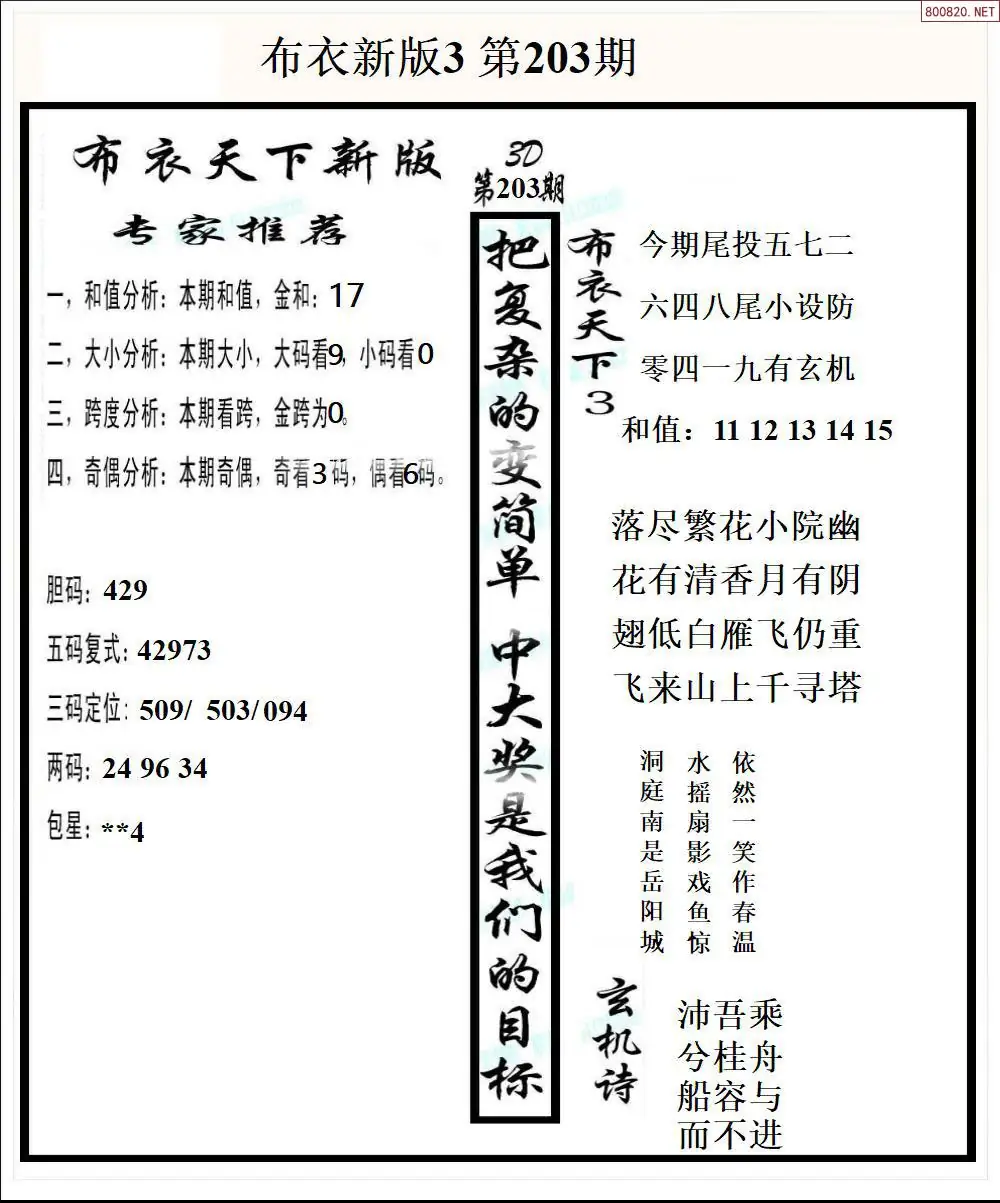 800820.NET
布衣新版3 第203期
布衣天下新版
专家推荐
一，和值分析：本期和值，金和：17
二，大小分析：本期大小，大码看9，小码看0
三，跨度分析：本期看跨，金跨为0。
四，奇偶分析：本期奇偶，奇看3码，偶看6码。
胆码：429
五码复式：42973
三码定位：509/ 503/094
两码：24 96 34
包星：**4
3D
第203期
把复杂的变简单 中大奖是我们的目标
布衣天下3
今期尾投五七二
六四八尾小设防
零四一九有玄机
和值：11 12 13 14 15
落尽繁花小院幽
花有清香月有阴
翅低白雁飞仍重
飞来山上千寻塔
依然一笑作春温
水摇扇影戏鱼惊
洞庭南是岳阳城
玄机诗
沛吾乘
兮桂舟
船容与
而不进